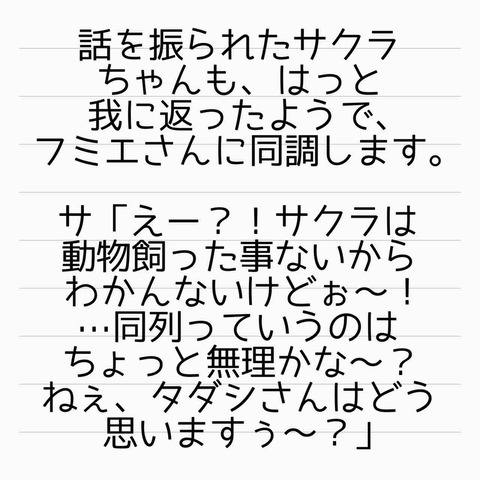 話を振られたサクラ
ちゃんも、はっと
我に返ったようで、
フミエさんに同調します。
サ「えー？！サクラは
動物飼った事ないから
わかんないけどぉ〜！
…同列っていうのは
ちょっと無理かな〜？
ねぇ、タダシさんはどう
思いますぅ〜？」